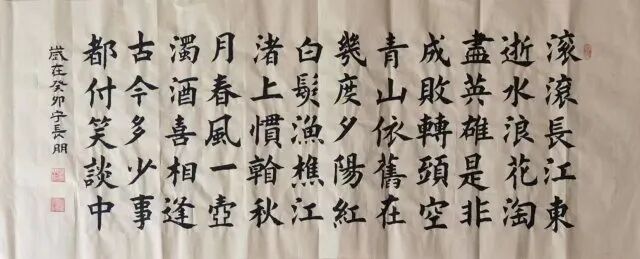 滚滚長江東
逝水浪花淘
盡英雄是非
成敗轉頭空
青山依舊在
幾度夕陽紅
白髮漁樵江
渚上慣翰秋
月春風一壺
濁酒喜相逢
古今多少事
都付笑談中
歲在癸卯長朋